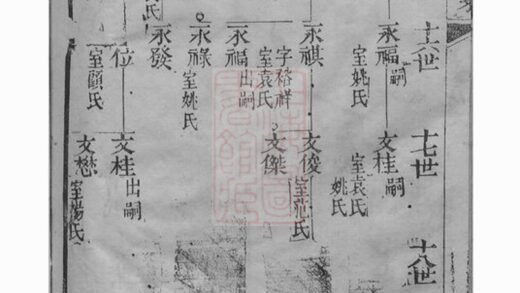 十六世
永福嗣
室姚氏
永祺
字裕祥
室袁氏
永福出嗣
永祿
室姚氏
永發
位
室顧氏
氏
十七世
文桂嗣
室袁氏
姚氏
文俊
室范氏
文傑
文桂出嗣
文懋
室楊氏
十八世